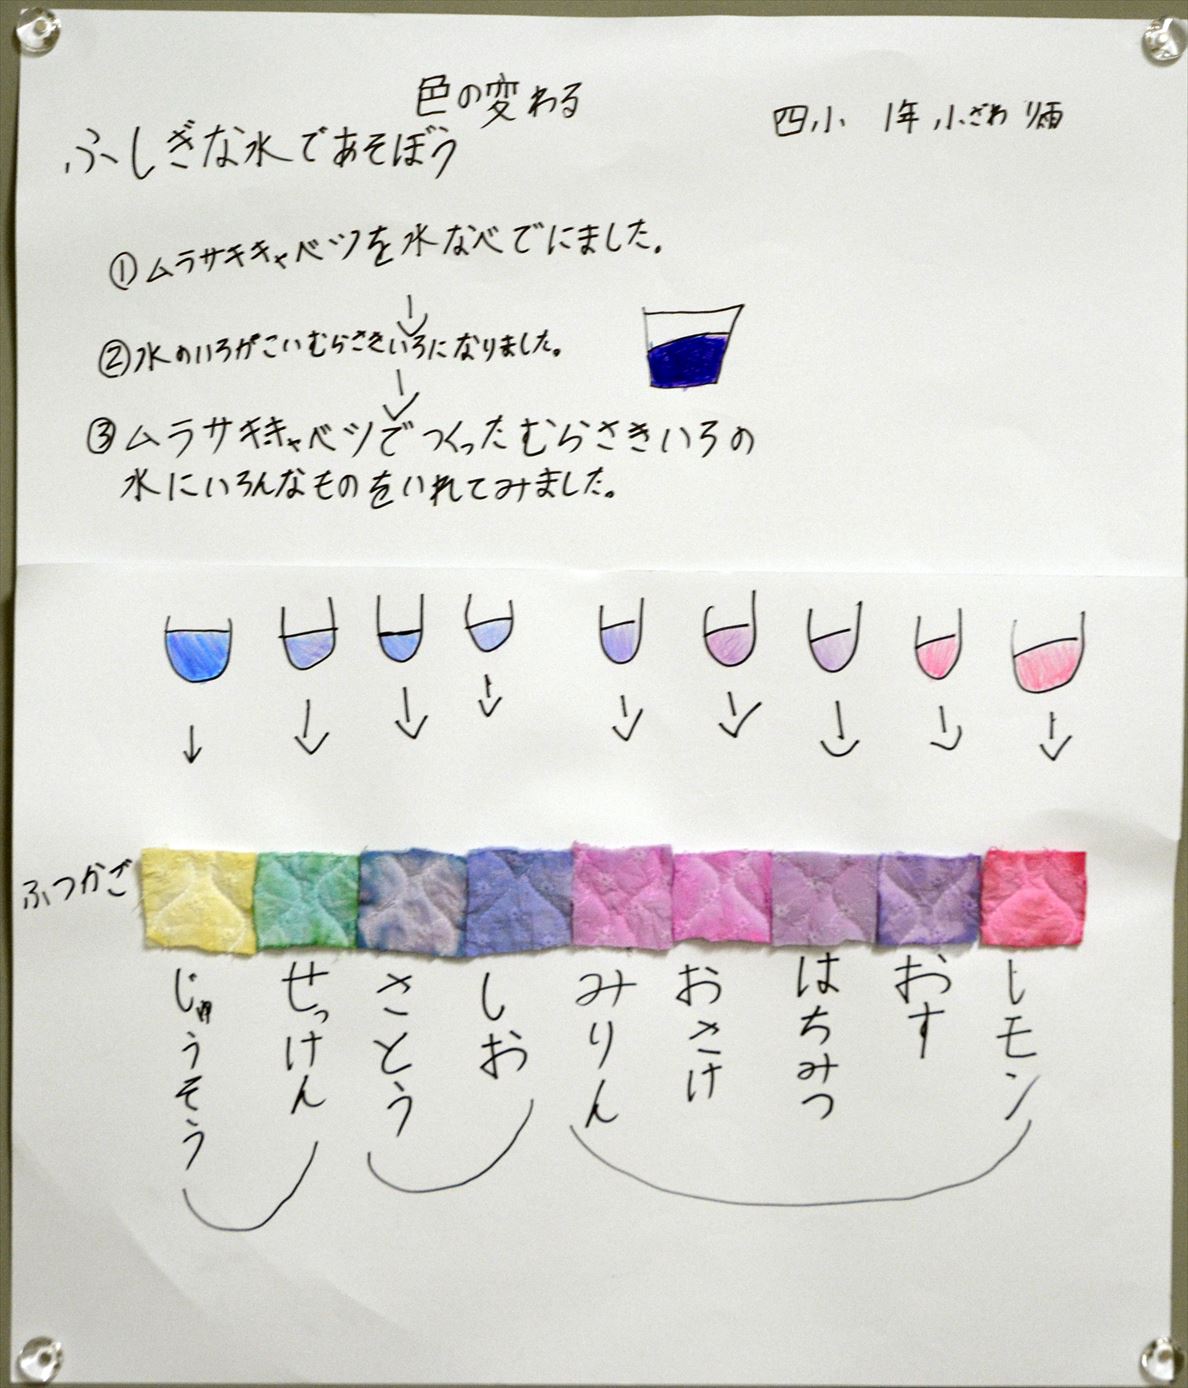 色の変わる
ふしぎな水であそぼう
四小 1年 小ざわ
①ムラサキキャベツを水なべでにました。
②水のいろがこいむらさきいろになりました。
③ムラサキキャベツでつくったむらさきいろの
水にいろんなものをいれてみました。
ふつかご
じゅうそう
せっけん
さとう
しお
みりん
おさけ
はちみつ
おす
レモン